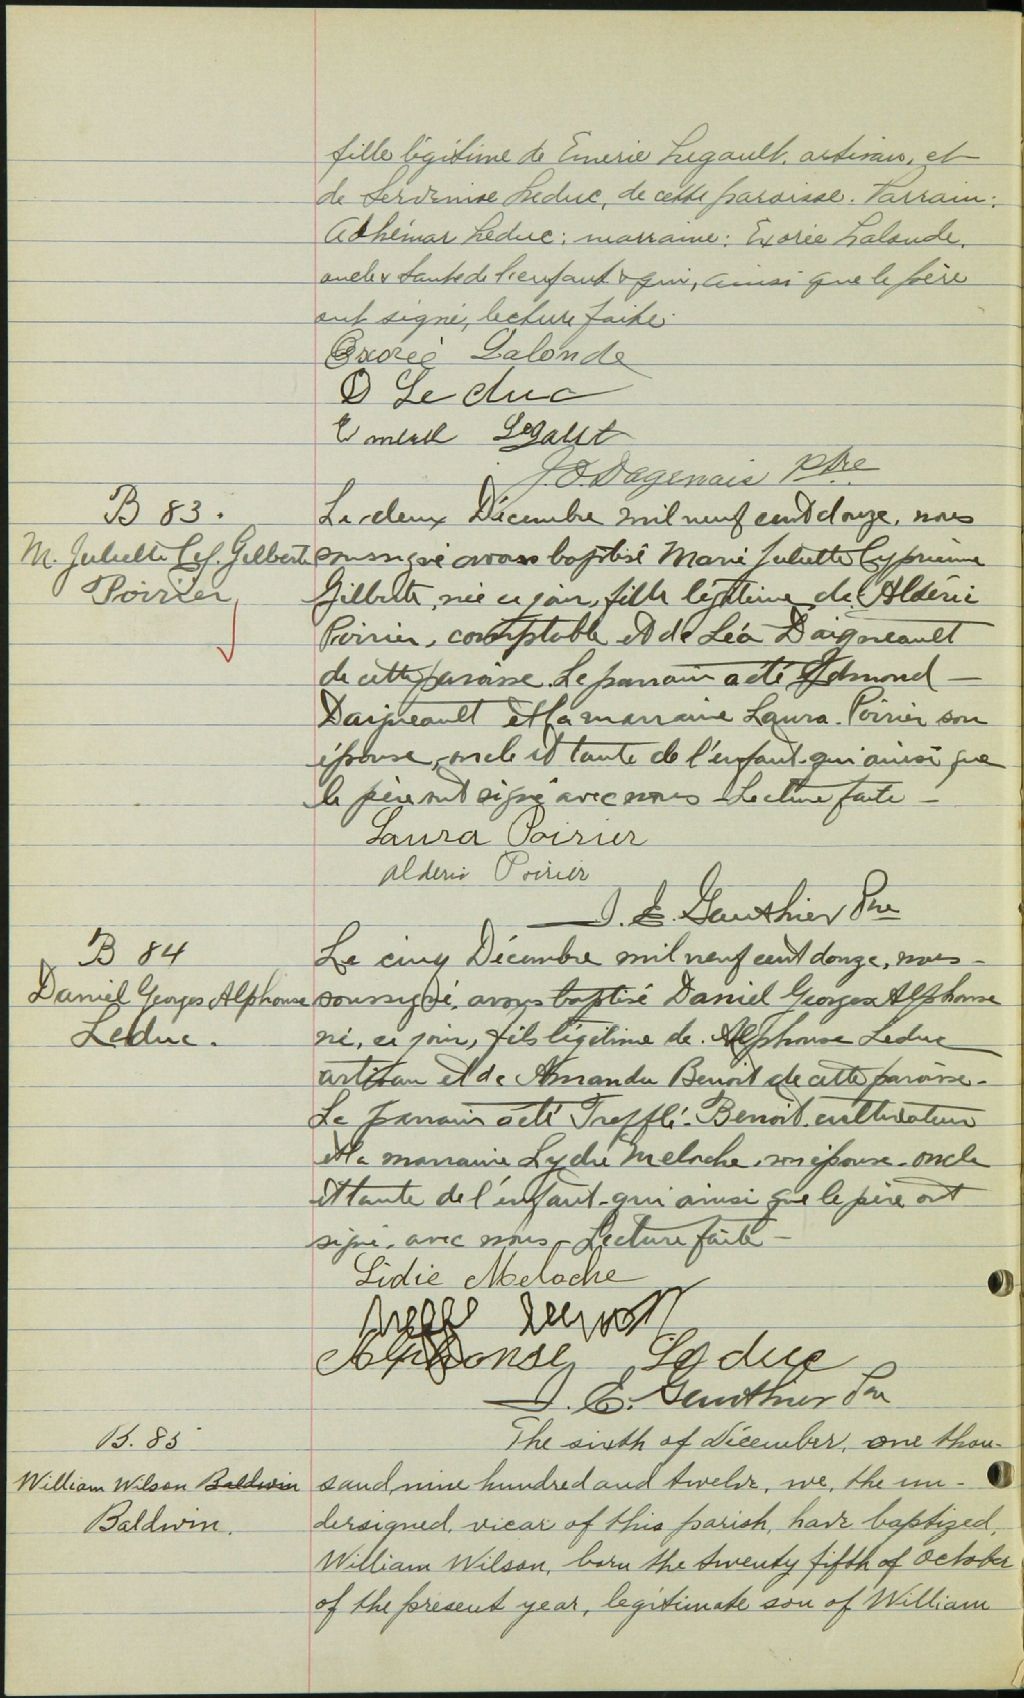 fille légitime de Emerie Legault, artisan, et
de Leduc, de cette paroisse. Parrain:
Adhémar Leduc; marraine: Exorée Lalonde,
oncle & tante de l'enfant & qui, ainsi que le père
ont signé, lecture faite.
Exoreé Lalonde
O Leduc
Legault
J. O. Dagenais Ptre
B 83.
M. Juliette Cyp. Gilberte
Poirier
Le deux Décembre mil neuf cent douze, nous
soussigné avons baptisé Marie Juliette Cyprienne
Gilberte, née ce jour, fille légitime de Aldéric
Poirier, comptable et de Léa Daigneault
de cette paroisse. Le parrain a été Edmond —
Daigneault et la marraine Laura Poirier son
épouse, oncle et tante de l'enfant qui ainsi que
le père ont signé avec nous - Lecture faite -
Laura Poirier
Alderic Poirier
J. E. Gauthier Ptre
B 84
Daniel Georges Alphonse
Leduc.
Le cinq Décembre mil neuf cent douze, nous -
soussigné, avons baptisé Daniel Georges Alphonse
né, ce jour, fils légitime de Alphonse Leduc
artisan et de Amanda Benoit de cette paroisse -
Le parrain a été Trefflé Benoit cultivateur
et la marraine Lydie Meloche, son épouse - oncle
et tante de l'enfant - qui ainsi que le père ont
signé avec nous - Lecture faite -
Lidie Meloche
Alphonse Leduc
J. E. Gauthier Ptre
B. 85
William Wilson Baldwin
Baldwin.
The sixth of Décember, one thou-
sand, nine hundred and twelve, we, the un-
dersigned, vicar of this parish, have baptized,
William Wilson, born the twenty fifth of October
of the present year, legitimate son of William